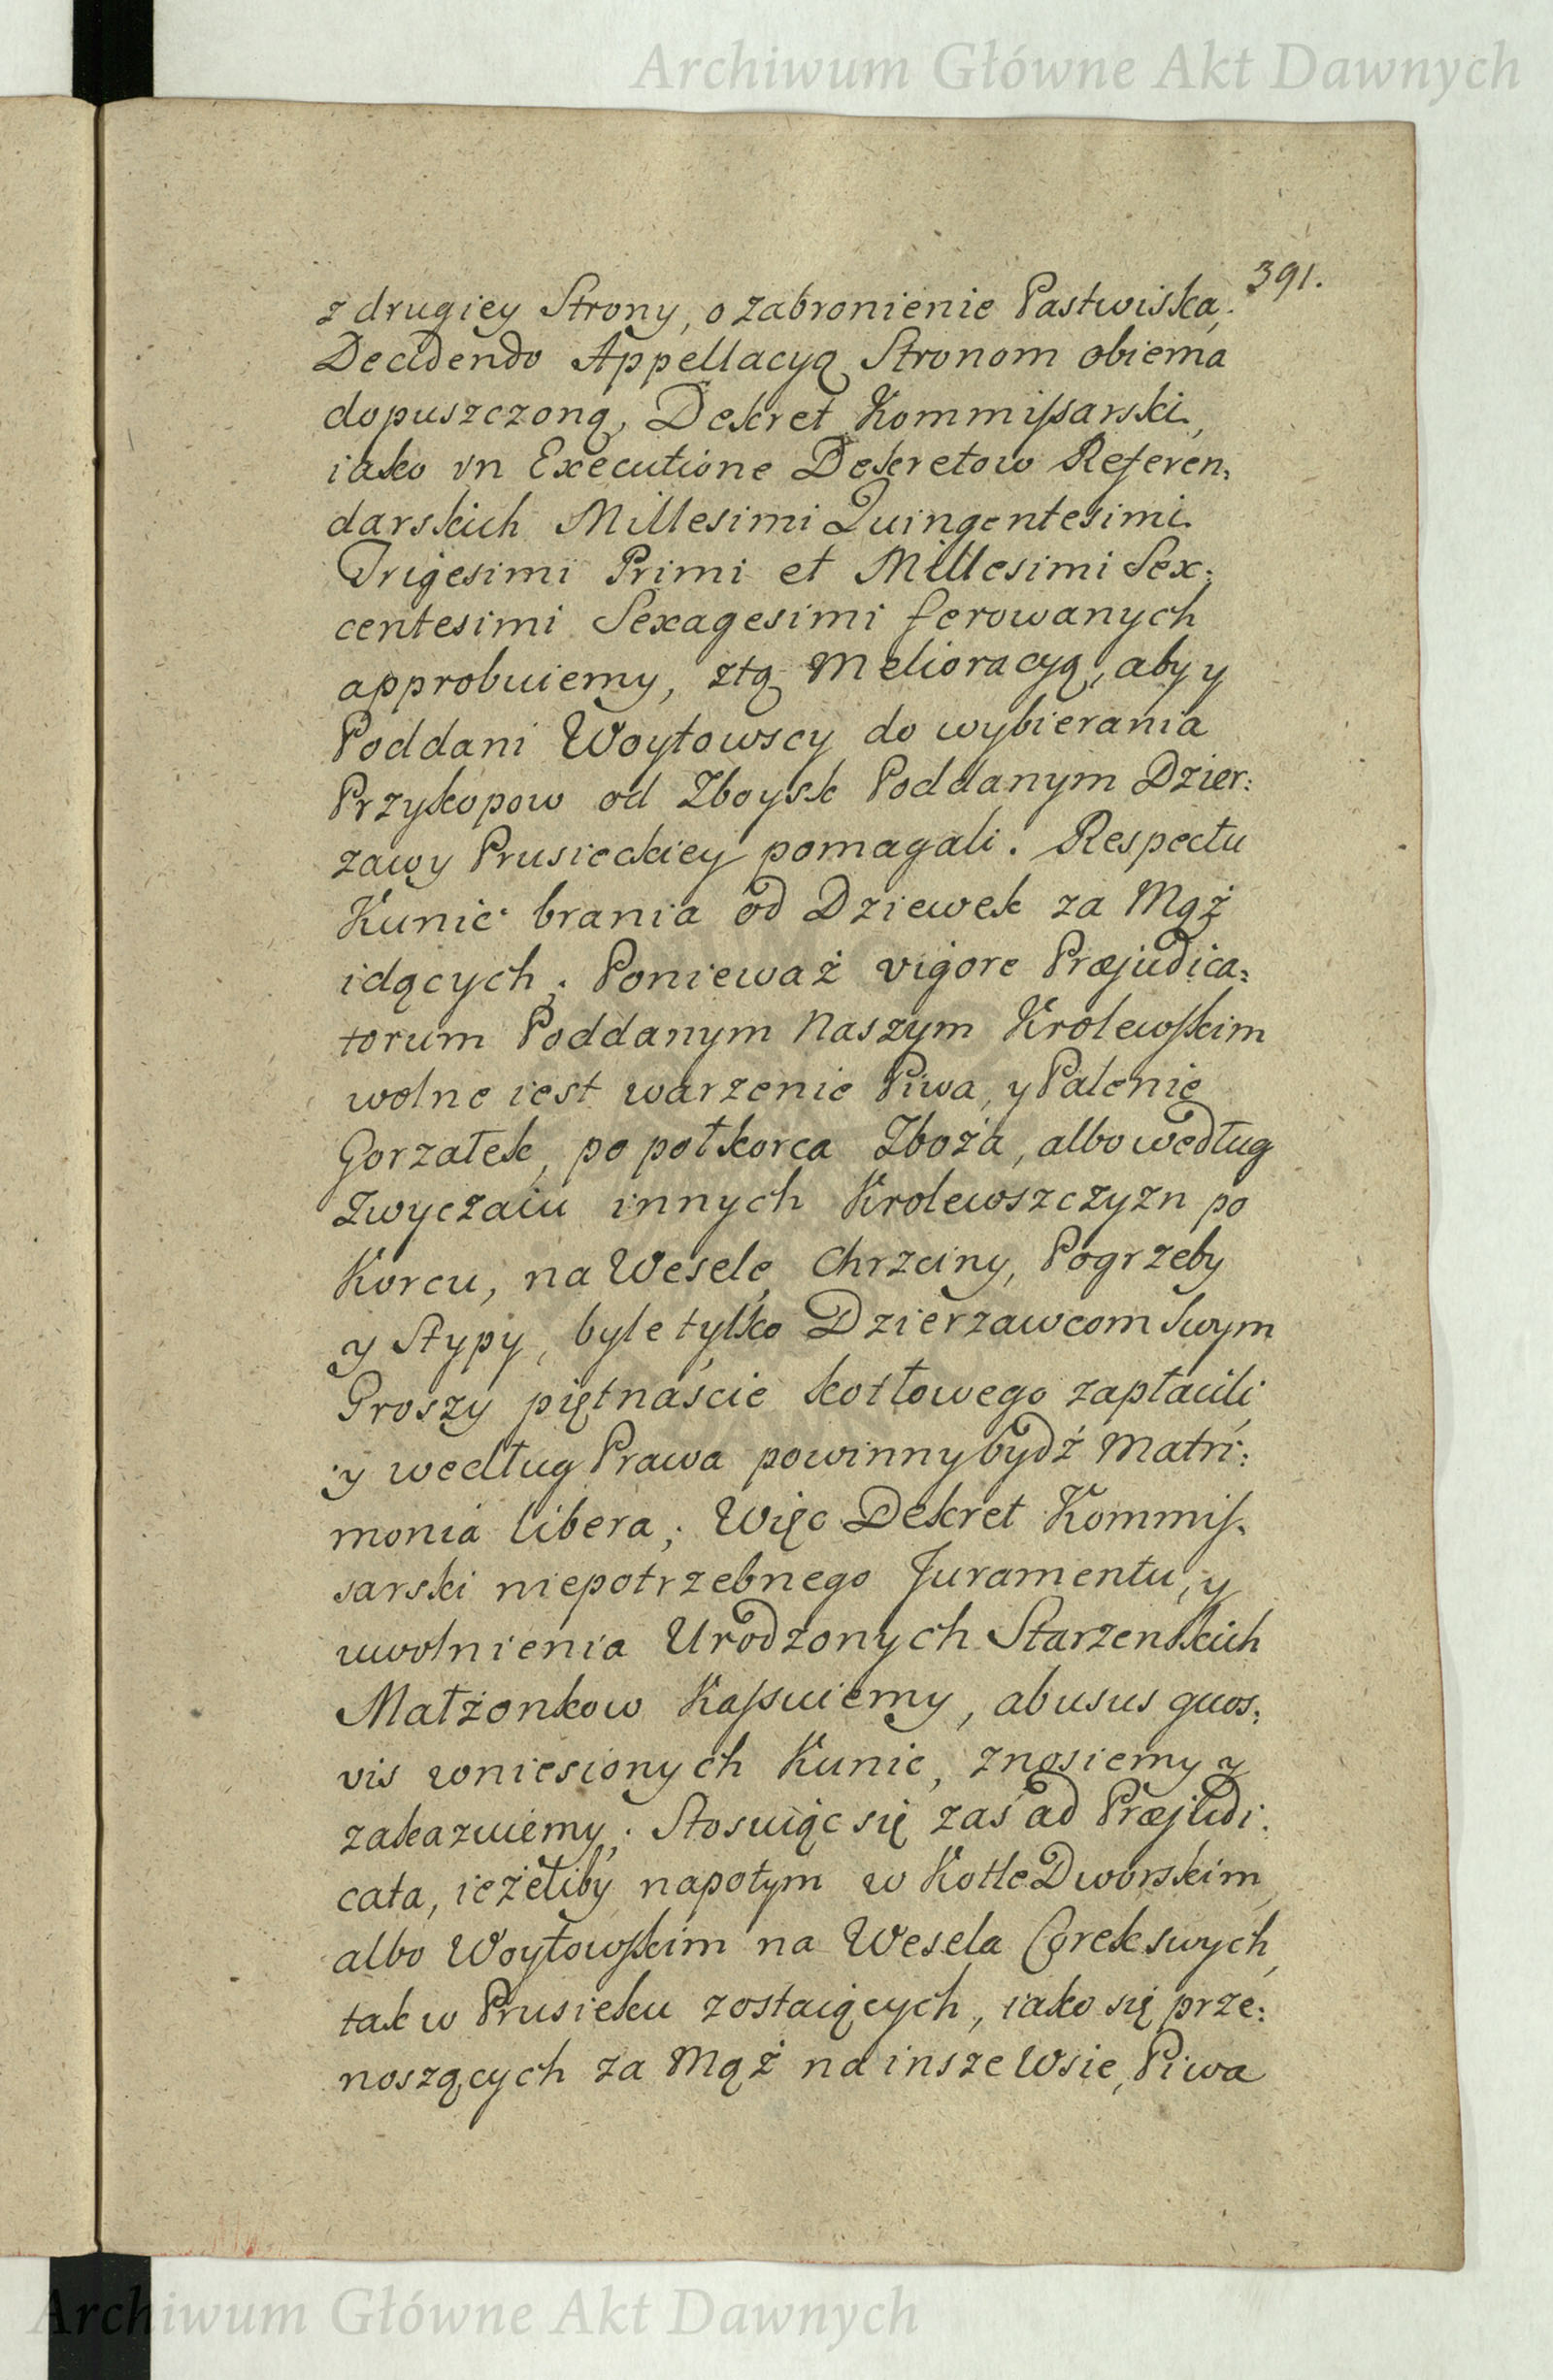 Archiwum Główne Akt Dawnych
391.
z drugiey Strony, o zabronienie Pastwiska,
Decidendo Appellacyą Stronom obiema
dopuszczoną, Dekret Kommißarski,
iako in Executione Dekretow Referen:
darskich Millesimi Quingentesimi
Trigesimi Primi et Millesimi Sex:
centesimi Sexagesimi ferowanych
approbuiemy, ztą Melioracyą, aby y
Poddani Woytowscy do wybierania
Przykopow od Zboysk Poddanym Dzier:
zawy Prusieckiey pomagali. Respectu
Kunic brania od Dziewek za Mąż
idących. Ponieważ vigore Præjudica:
torum Poddanym Naszym Krolewskim
wolne iest warzenie Piwa, y Palenie
Gorzałek, po połkorca Zboża, albo według
Zwyczaiu innych Krolewszczyzn po
Korcu, na Wesele, Chrzciny, Pogrzeby
y Stypy, byle tylko Dzierzawcom swym
Groszy piętnaście kotłowego zapłacili
y według Prawa powinny bydź Matri:
monia libera; Więc Dekret Kommis:
sarski niepotrzebnego Juramentu, y
uwolnienia Urodzonych Starzenskich
Małżonkow Kaßuiemy, abusus quos:
vis wniesionych Kunic, znosiemy y
zakazuiemy. Stosuiąc się zaś ad Præjudi:
cata, ieżeliby napotym w Kotle Dworskim,
albo Woytowskim na Wesela Corek swych,
tak w Prusieku zostaiących, iako się prze:
noszących za Mąż na insze Wsie, Piwa
Archiwum Główne Akt Dawnych